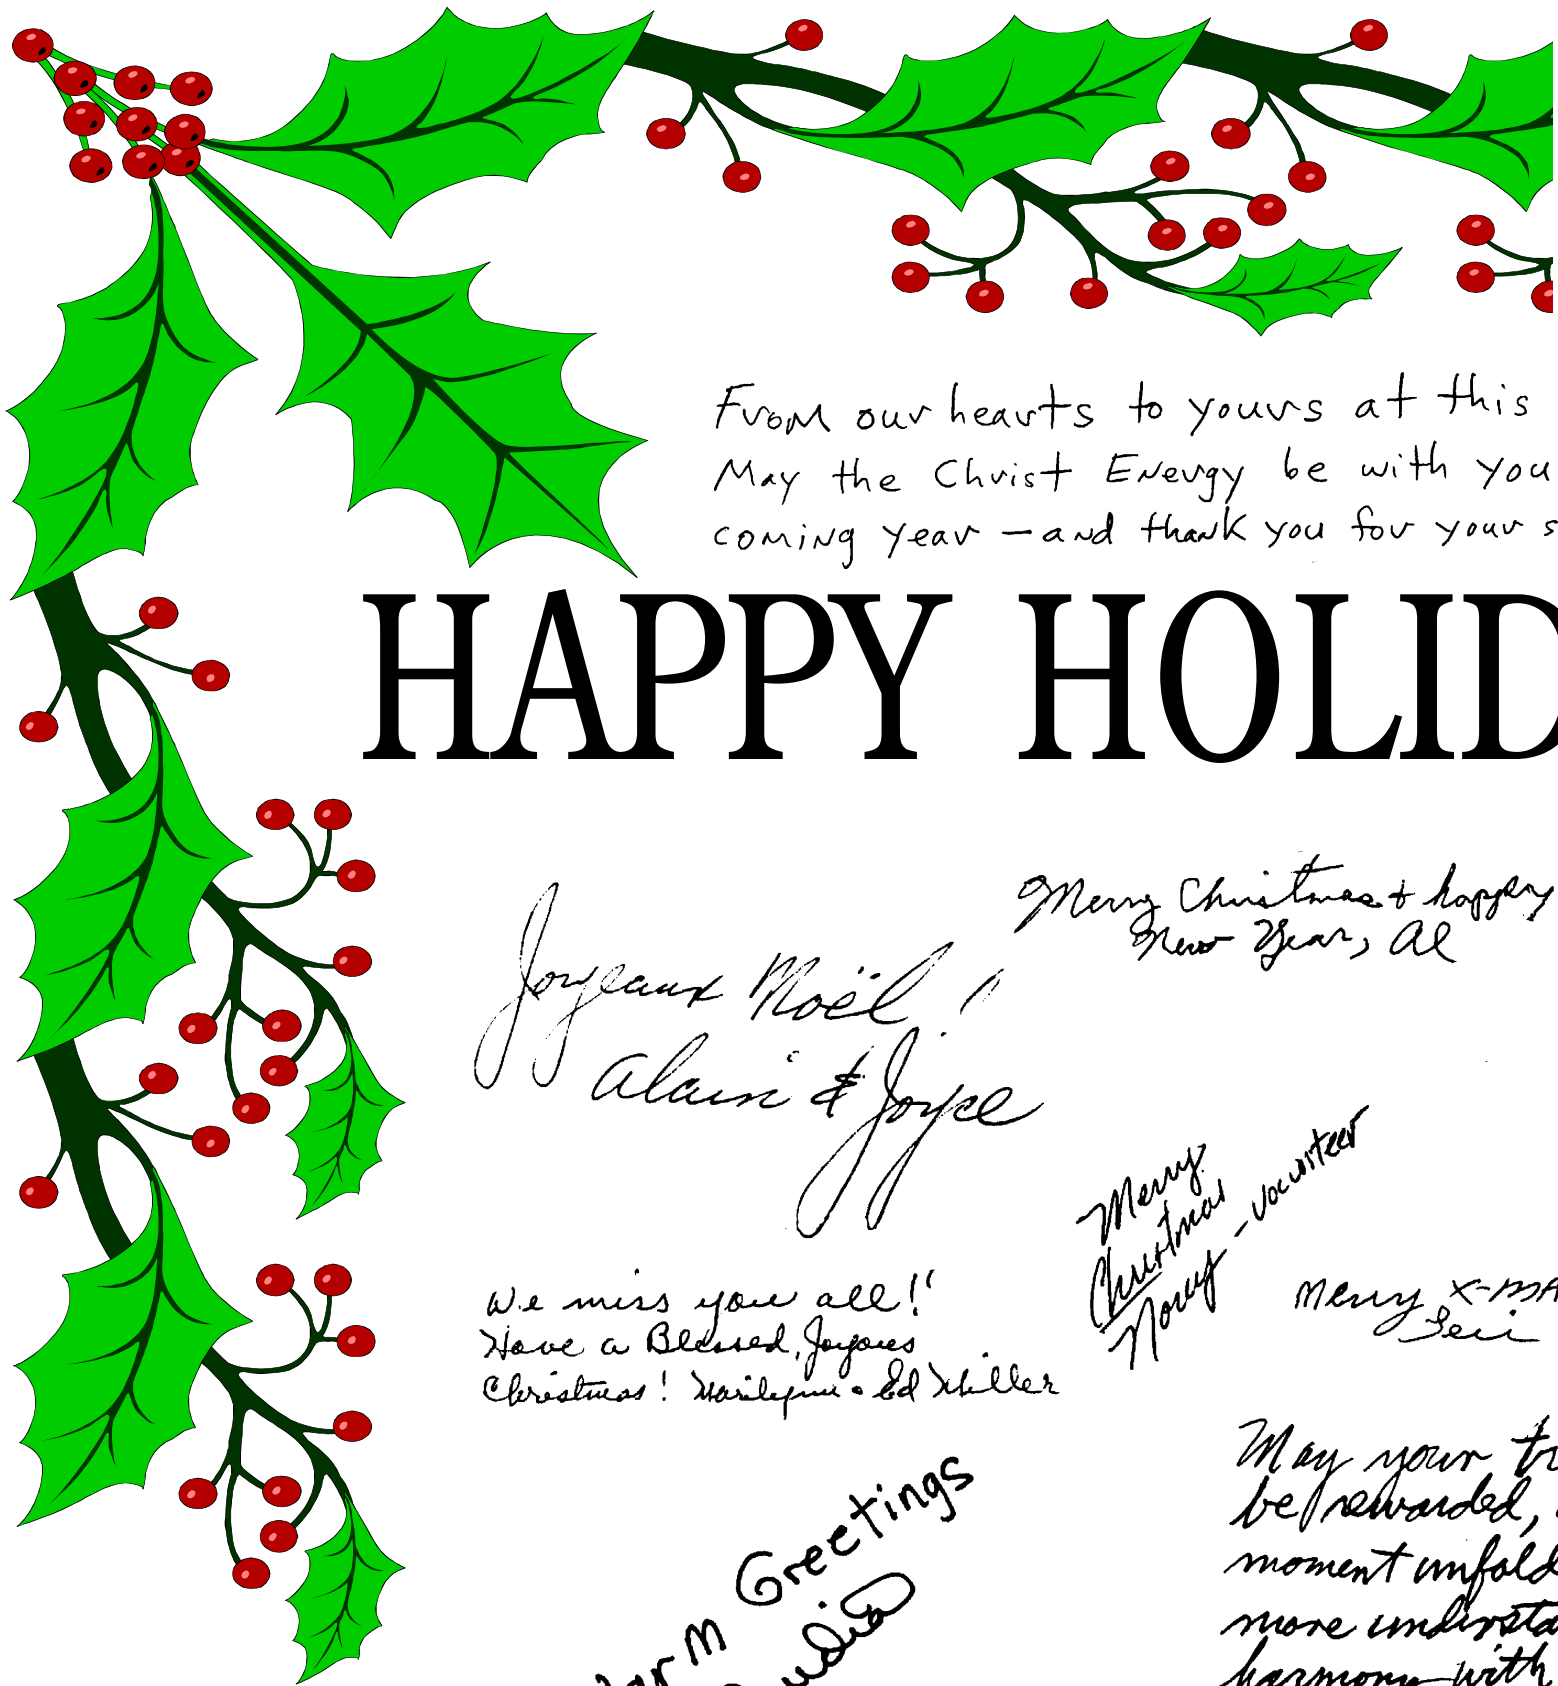 From our hearts to yours at this
May the Christ Energy be with you
coming year — and thank you for your s
HAPPY HOLID
Merry Christmas & happy
New Year, Al
Joyeaux Noël !
Alain & Joyce
Merry
Christmas
Nancy - volunteer
We miss you all!!
Have a Blessed, Joyous
Christmas! Marilynn & Ed Miller
Merry X-MA
Teri
May your tr
be rewarded,
moment unfold
more understa
harmony with
arm Greetings